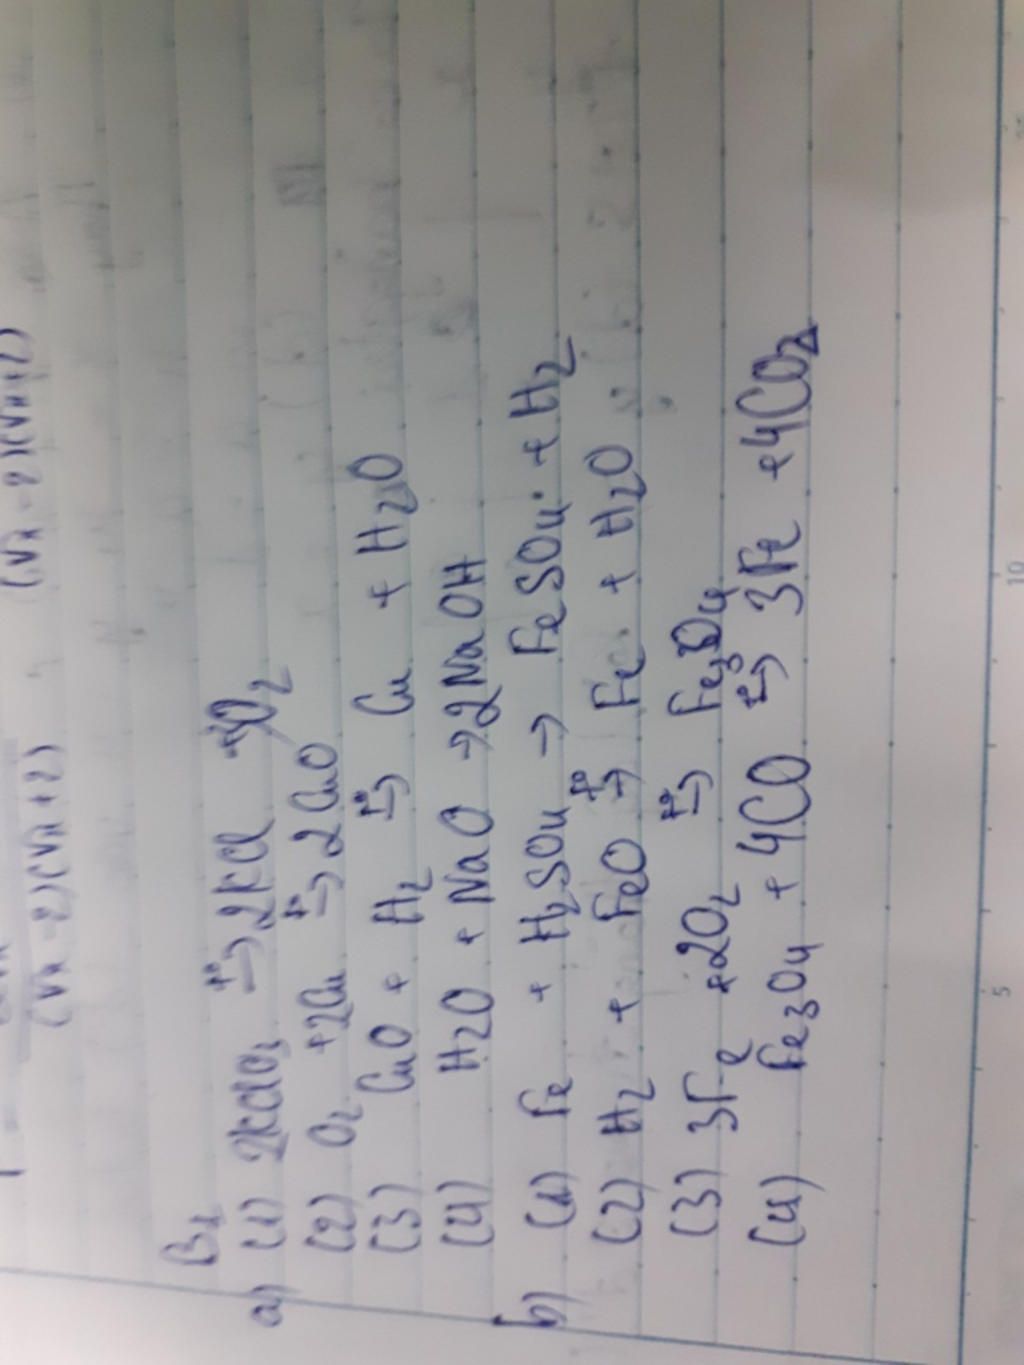 (√x-2)(√x+2)
(√x-2)(√x+2)
B1
a) (1) 2KClO3 t°→ 2KCl +3O2
(2) O2 +2Cu t°→ 2CuO
(3) CuO + H2 t°→ Cu + H2O
(4) H2O + NaO → 2NaOH
b) (1) Fe + H2SO4 → FeSO4 + H2
(2) H2 + FeO t°→ Fe + H2O
(3) 3Fe +2O2 t°→ Fe3O4
(4) Fe3O4 + 4CO t°→ 3Fe +4CO2
5 10